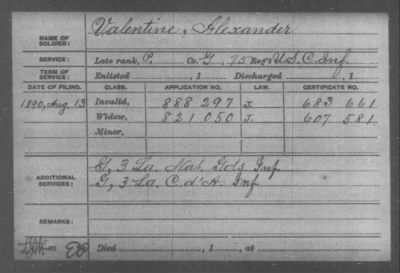 NAME OF SOLDIER: Valentine, Alexander
SERVICE: Late rank, P. Co. G, 75 Reg't U.S.C. Inf.
TERM OF SERVICE: Enlisted , 1 Discharged , 1
DATE OF FILING. CLASS. APPLICATION NO. LAW. CERTIFICATE NO.
1890, Aug. 13 Invalid, 888 297 J. 683 661
Widow, 821 050 J. 607 581
Minor,
ADDITIONAL SERVICES: G, 3 La. Nat. Gds. Inf
G, 3 La. C. d'A. Inf
REMARKS:
Died , 1 , at